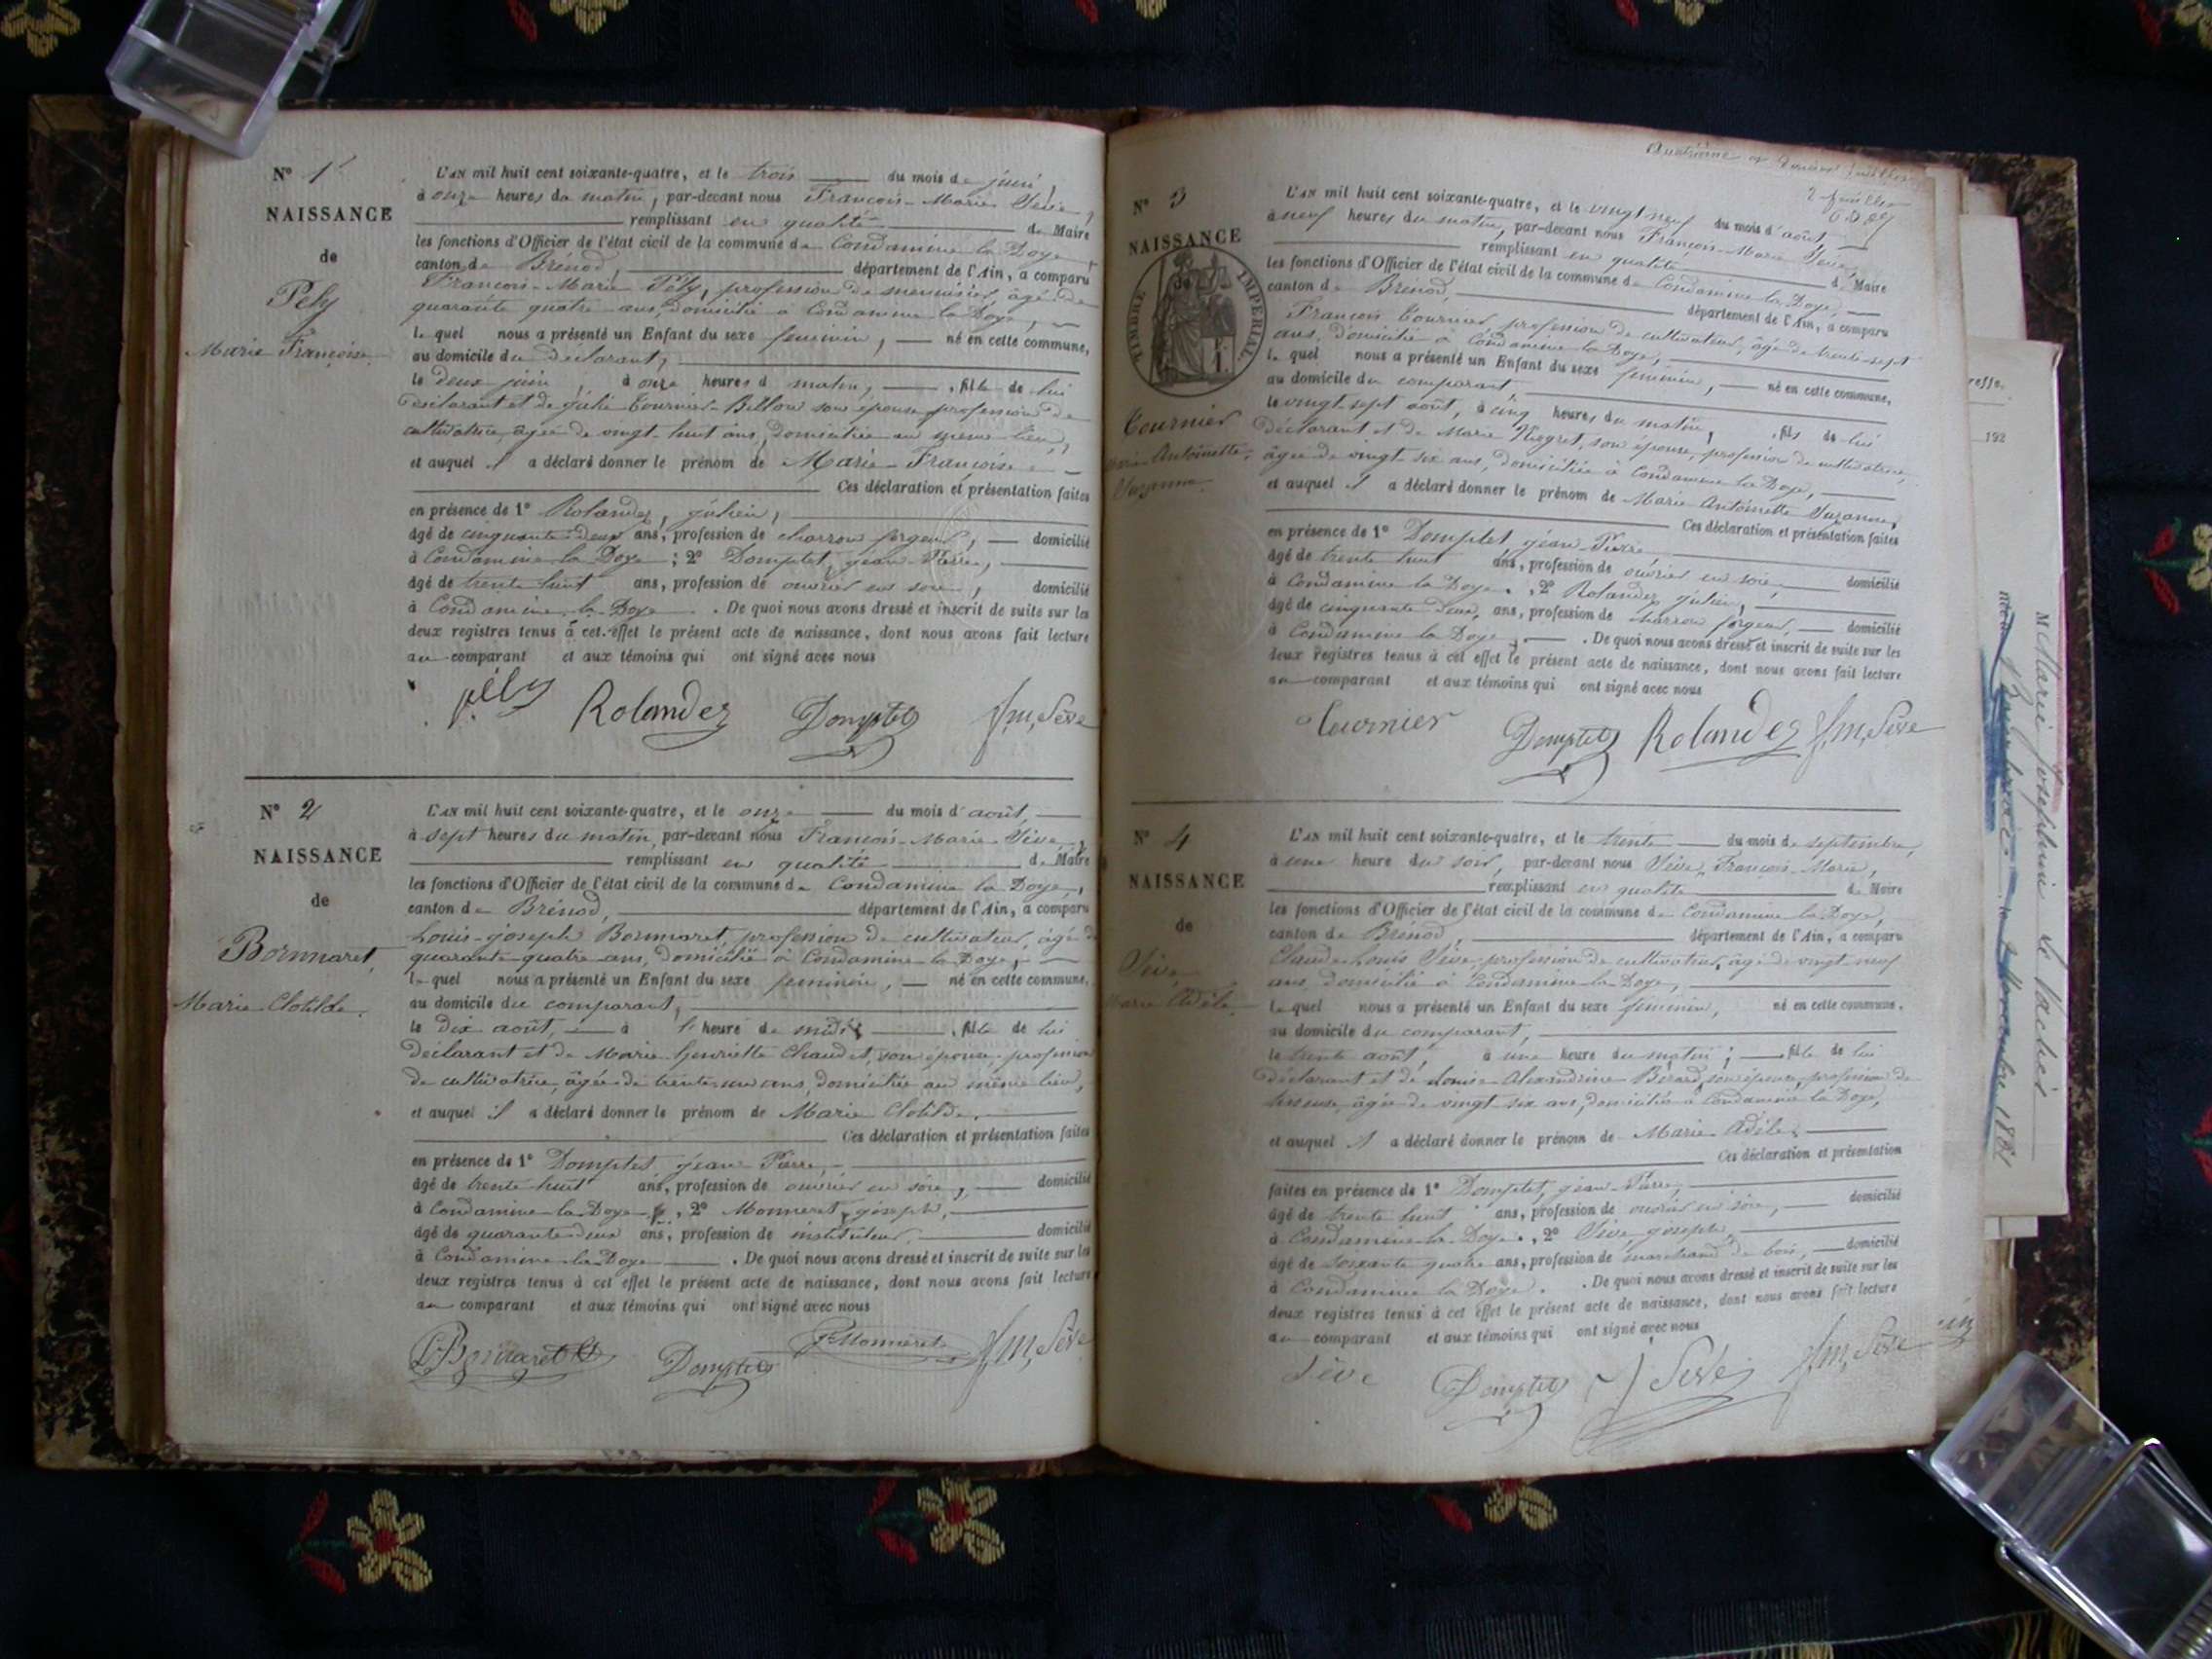 N° 1
NAISSANCE
de
Pely
Marie Françoise
L'AN mil huit cent soixante-quatre, et le trois du mois de juin,
à onze heures du matin, par-devant nous François-Marie Sève,
remplissant en qualité de Maire
les fonctions d'Officier de l'état civil de la commune de Condamine la Doye,
canton de Brénod, département de l'Ain, a comparu
François-Marie Pély, profession de menuisier, âgé de
quarante quatre ans, domicilié à Condamine la Doye,
lequel nous a présenté un Enfant du sexe féminin, né en cette commune,
au domicile du déclarant,
le deux juin, à onze heures d matin, fille de lui
déclarant et de Julie Tournier-Billon son épouse, profession de
cultivatrice, âgée de vingt-huit ans, domiciliée au même lieu,
et auquel il a déclaré donner le prénom de Marie-Françoise
Ces déclaration et présentation faites
en présence de 1° Rolandez, julien,
âgé de cinquante-deux ans, profession de charron forgeur, domicilié
à Condamine la Doye ; 2° Domptet, jean-Pierre,
âgé de trente huit ans, profession de ouvrier en soie, domicilié
à Condamine la Doye. De quoi nous avons dressé et inscrit de suite sur les
deux registres tenus à cet effet le présent acte de naissance, dont nous avons fait lecture
au comparant et aux témoins qui ont signé avec nous
pély Rolandez Domptet f.m. Sève
N° 2
NAISSANCE
de
Bornmaret
Marie Clotilde.
L'AN mil huit cent soixante-quatre, et le onze du mois d'août,
à sept heures du matin, par-devant nous François-Marie Sève,
remplissant en qualité de Maire
les fonctions d'Officier de l'état civil de la commune de Condamine la Doye,
canton de Brénod, département de l'Ain, a comparu
Louis-joseph Bornmaret, profession de cultivateur, âgé de
quarante-quatre ans, domicilié à Condamine la Doye,
lequel nous a présenté un Enfant du sexe féminin, né en cette commune,
au domicile du comparant,
le dix août, à l'heure de midi, fille de lui
déclarant et de Marie-henriette Chaudet, son épouse, profession
de cultivatrice, âgée de trente un ans, domiciliée au même lieu,
et auquel il a déclaré donner le prénom de Marie Clotilde,
Ces déclaration et présentation faites
en présence de 1° Domptet, jean-Pierre,
âgé de trente-huit ans, profession de ouvrier en soie, domicilié
à Condamine-la-Doye, 2° Monneret, joseph,
âgé de quarante deux ans, profession de instituteur, domicilié
à Condamine-la-Doye. De quoi nous avons dressé et inscrit de suite sur les
deux registres tenus à cet effet le présent acte de naissance, dont nous avons fait lecture
au comparant et aux témoins qui ont signé avec nous
Domptet Monneret f.m. Sève
2 feuillet
N° 3
NAISSANCE
TIMBRE IMPÉRIAL
Tournier
Marie Antoinette,
Suzanne.
L'AN mil huit cent soixante-quatre, et le vingt neuf du mois d'août,
à neuf heures du matin, par-devant nous François-Marie Sève,
remplissant en qualité de Maire
les fonctions d'Officier de l'état civil de la commune de Condamine la Doye,
canton de Brénod, département de l'Ain, a comparu
François Tournier, profession de cultivateur, âgé de trente-sept
ans, domicilié à Condamine la Doye,
lequel nous a présenté un Enfant du sexe féminin, né en cette commune,
au domicile du comparant
le vingt-sept août, à cinq heures du matin, fils de lui
déclarant et de Marie son épouse, profession de cultivatrice,
âgée de vingt-six ans, domiciliée à Condamine la Doye,
et auquel il a déclaré donner le prénom de Marie Antoinette Suzanne,
Ces déclaration et présentation faites
en présence de 1° Domptet jean Pierre
âgé de trente huit ans, profession de ouvrier en soie, domicilié
à Condamine la Doye, 2° Rolandez julien,
âgé de cinquante deux, ans, profession de charron forgeur, domicilié
à Condamine la Doye. De quoi nous avons dressé et inscrit de suite sur les
deux registres tenus à cet effet le présent acte de naissance, dont nous avons fait lecture
au comparant et aux témoins qui ont signé avec nous
Tournier Domptet Rolandez f.m. Sève
N° 4
NAISSANCE
de
Sève,
Marie Adèle.
L'AN mil huit cent soixante-quatre, et le trente du mois de septembre,
à une heure du soir, par-devant nous Sève, François-Marie,
remplissant en qualité de Maire
les fonctions d'Officier de l'état civil de la commune de Condamine la Doye,
canton de Brénod, département de l'Ain, a comparu
Claude-Louis Sève, profession de cultivateur, âgé de vingt neuf
ans, domicilié à Condamine la Doye,
lequel nous a présenté un Enfant du sexe féminin, né en cette commune.
au domicile du comparant,
le trente août, à une heure du matin, fille de lui
déclarant et de Louise Alexandrine Bérard, son épouse, profession de
âgée de vingt-six ans, domiciliée à Condamine la Doye,
et auquel il a déclaré donner le prénom de Marie Adèle,
Ces déclaration et présentation
faites en présence de 1° Domptet, jean-Pierre,
âgé de trente huit ans, profession de ouvrier en soie, domicilié
à Condamine la Doye., 2° Sève joseph,
âgé de soixante quatre ans, profession de marchand de bois, domicilié
à Condamine la Doye. De quoi nous avons dressé et inscrit de suite sur les
deux registres tenus à cet effet le présent acte de naissance, dont nous avons fait lecture
au comparant et aux témoins qui ont signé avec nous
Sève Domptet J Sève f.m. Sève
192
M Marie Joséphine